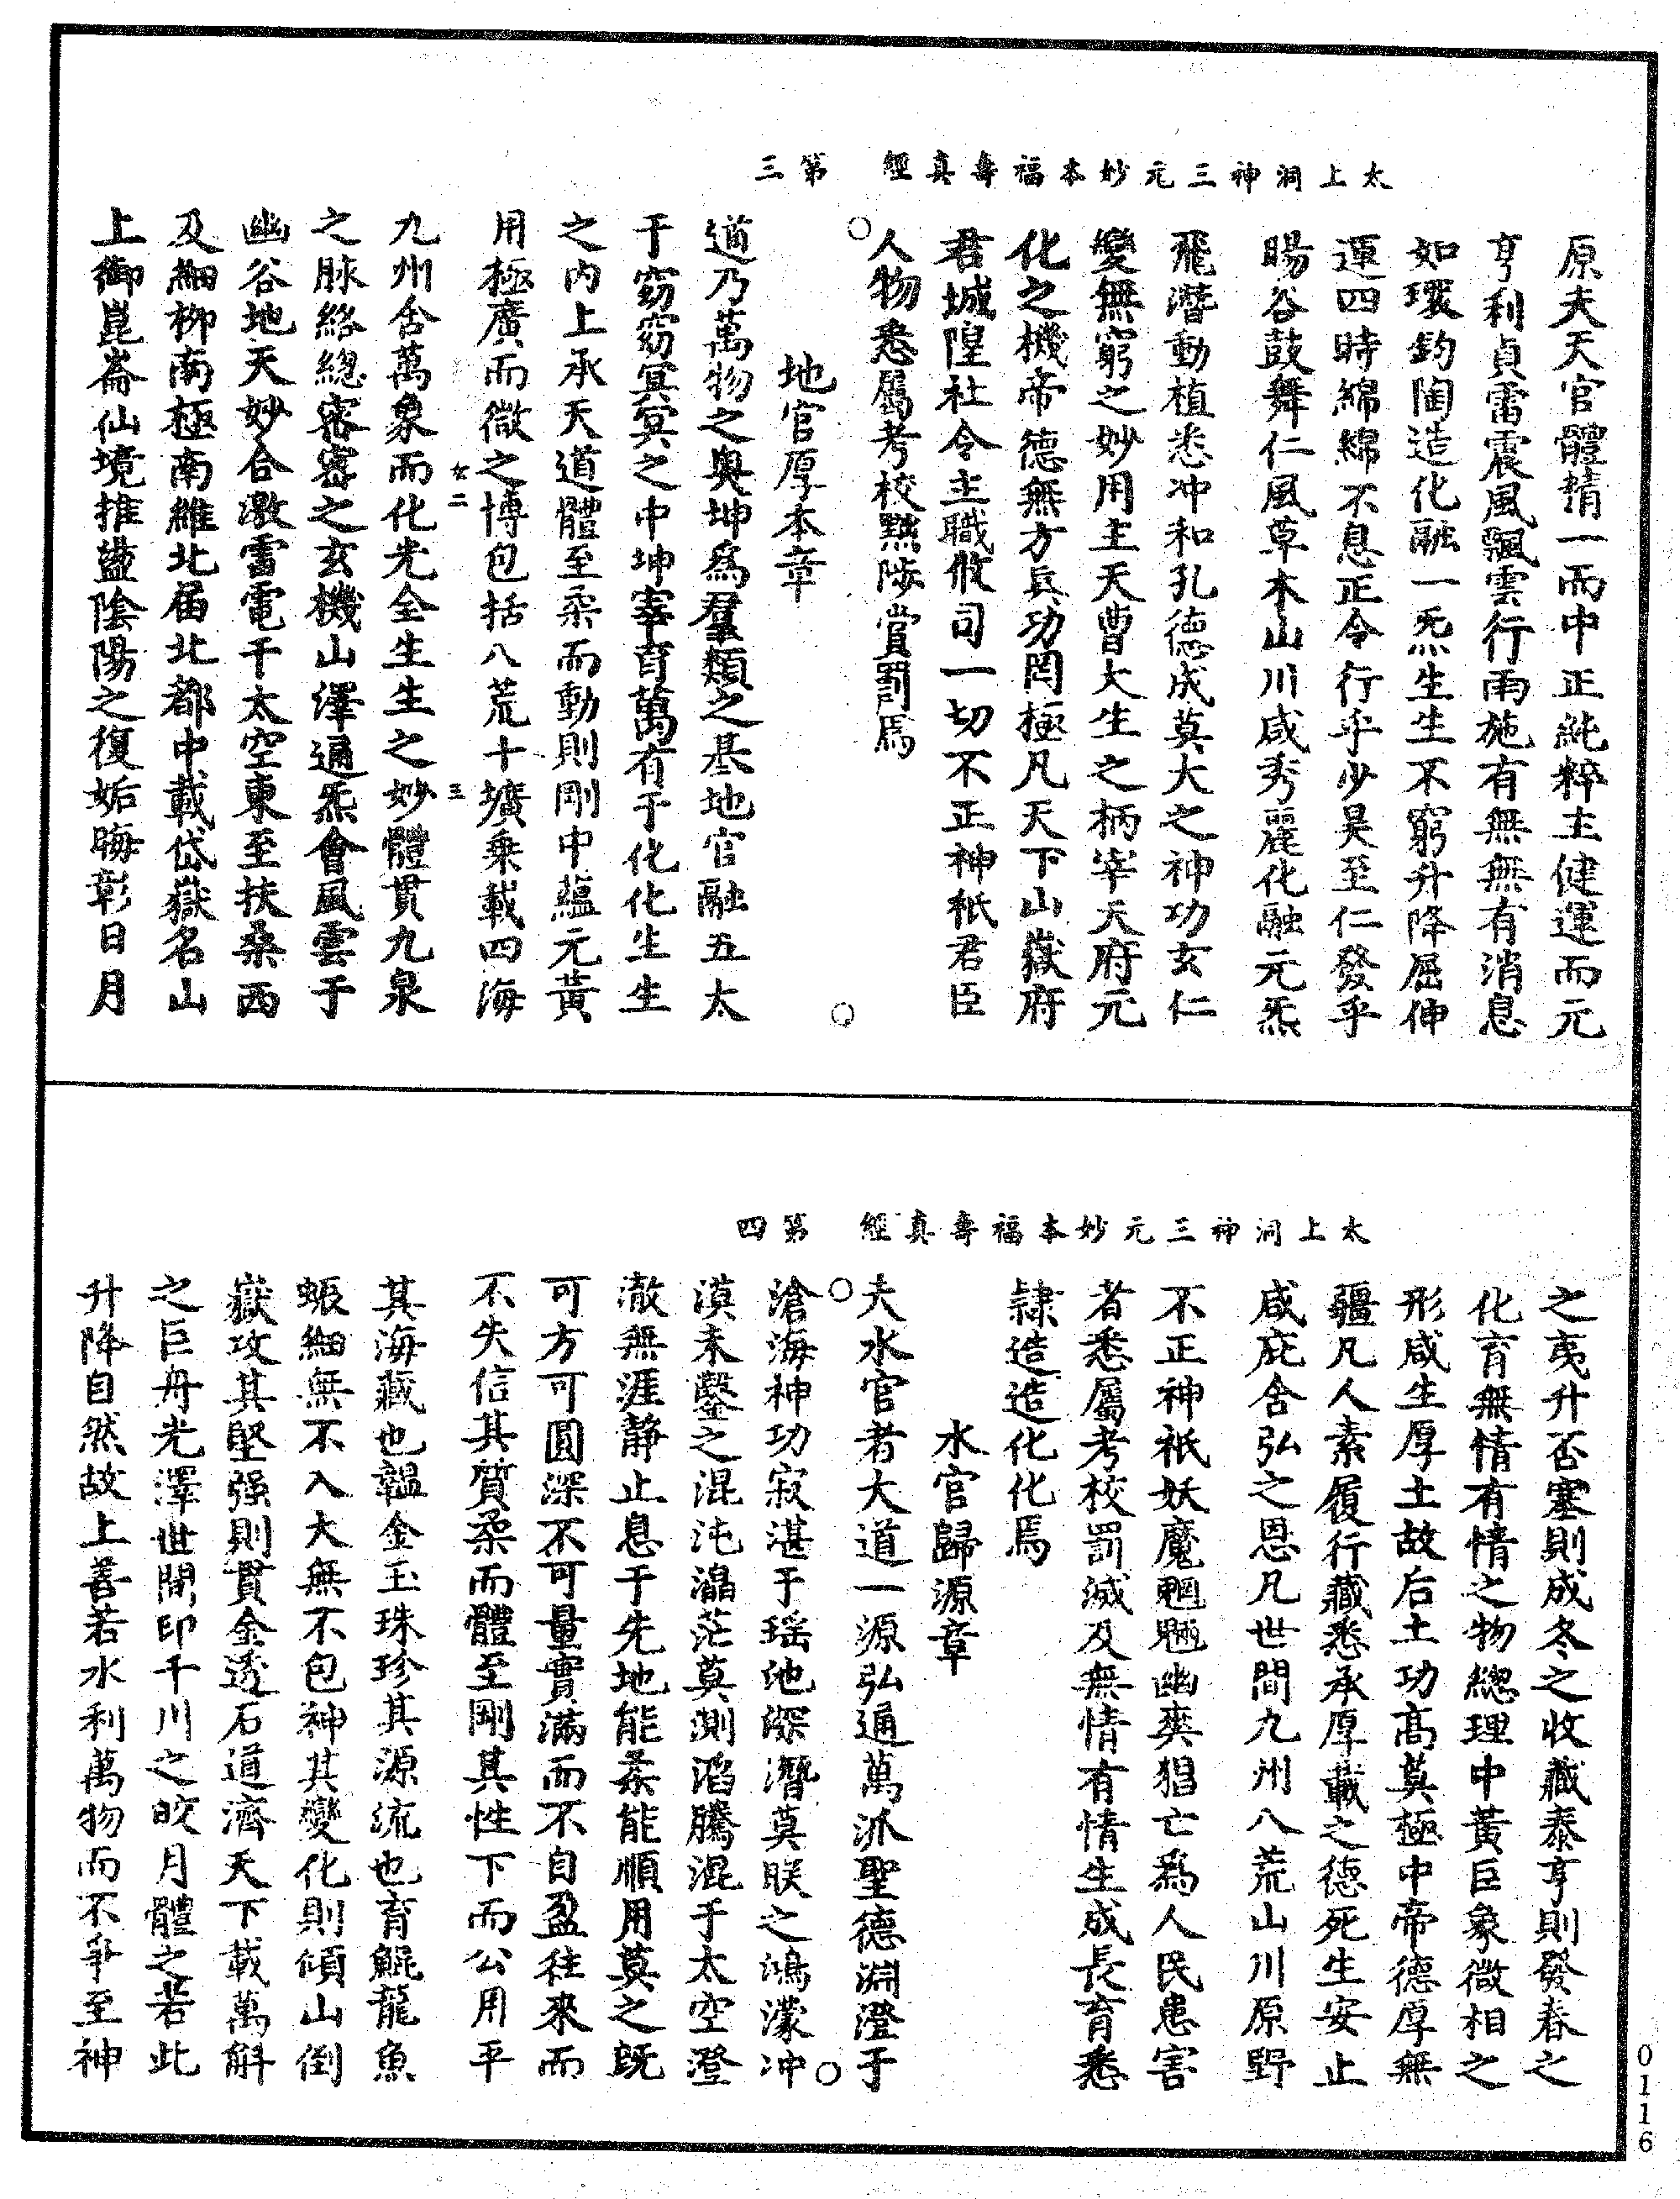 太上洞神三元妙本福壽真經　第三
原夫天官體精一而中正純粹主健運而元
亨利貞雷震風飄雲行雨施有無無有消息
如環鈞陶造化融一炁生生不窮升降屈伸
運四時綿綿不息正令行乎少昊至仁發乎
暘谷鼓舞仁風草木山川咸秀麗化融元炁
飛潛動植悉冲和孔德成莫大之神功玄仁
變無窮之妙用主天曹大生之柄宰天府元
化之機帝德無方真功罔極凡天下山嶽府
君城隍社令主職攸司一切不正神祇君臣
人物悉屬考校黜陟賞罰焉
地官厚本章
道乃萬物之奥坤爲羣類之基地官融五太
于窈窈冥冥之中坤宰育萬有于化化生生
之内上承天道體至柔而動則剛中蘊元黃
用極廣而微之博包括八荒十壙乗載四海
女二　三
九州含萬象而化光全生生之妙體貫九泉
之脉絡總密密之玄機山澤通炁會風雲于
幽谷地天妙合激雷電于太空東至扶桑西
及細柳南極南維北屆北都中載岱嶽名山
上御崑崙仙境推盪陰陽之復姤晦彰日月
太上洞神三元妙本福壽真經　第四
之夷升否塞則成冬之收藏泰亨則發春之
化育無情有情之物總理中黃巨象微相之
形咸生厚土故后土功髙莫極中帝德厚無
疆凡人素履行藏悉承厚載之德死生安止
咸庇含弘之恩凡世間九州八荒山川原野
不正神祇妖魔魍魎幽爽猖亡爲人民患害
者悉屬考校罰滅及無情有情生成長育悉
隷造造化化焉
水官歸源章
夫水官者大道一源弘通萬派聖德淵澄于
滄海神功寂湛于瑶池深潛莫朕之鴻濛冲
漠未鑿之混沌瀛茫莫測滔騰混于太空澄
澈無涯静止息于先地能柔能順用莫之既
可方可圓深不可量實滿而不自盈徃來而
不失信其質柔而體至剛其性下而公用平
其海藏也韞金玉珠珍其源流也育鯤龍魚
蜄細無不入大無不包神其變化則傾山倒
嶽攻其堅强則貫金透石道濟天下載萬斛
之巨舟光澤世間印千川之皎月體之若此
升降自然故上善若水利萬物而不爭至神
0116